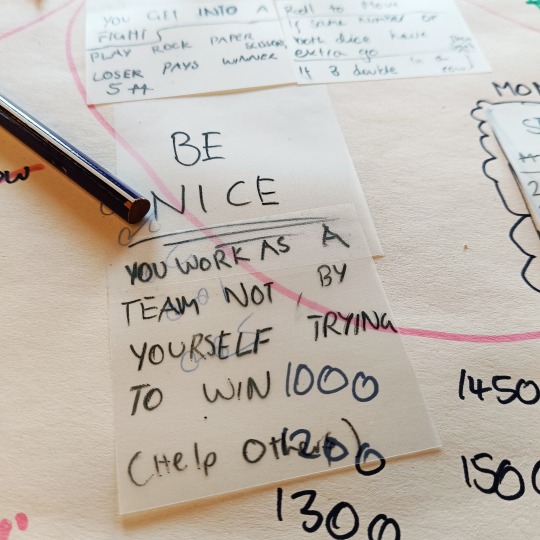 YOU GET INTO A
FIGHT
PLAY ROCK PAPER SCISSORS,
LOSER PAYS WINNER
5
Roll to Move
If same number on
both dice have
extra go
If 3 double in a
row
BE
NICE
YOU WORK AS A
TEAM NOT BY
YOURSELF TRYING
TO WIN
(Help Others)
1000
1200
1300
1450
150
MO